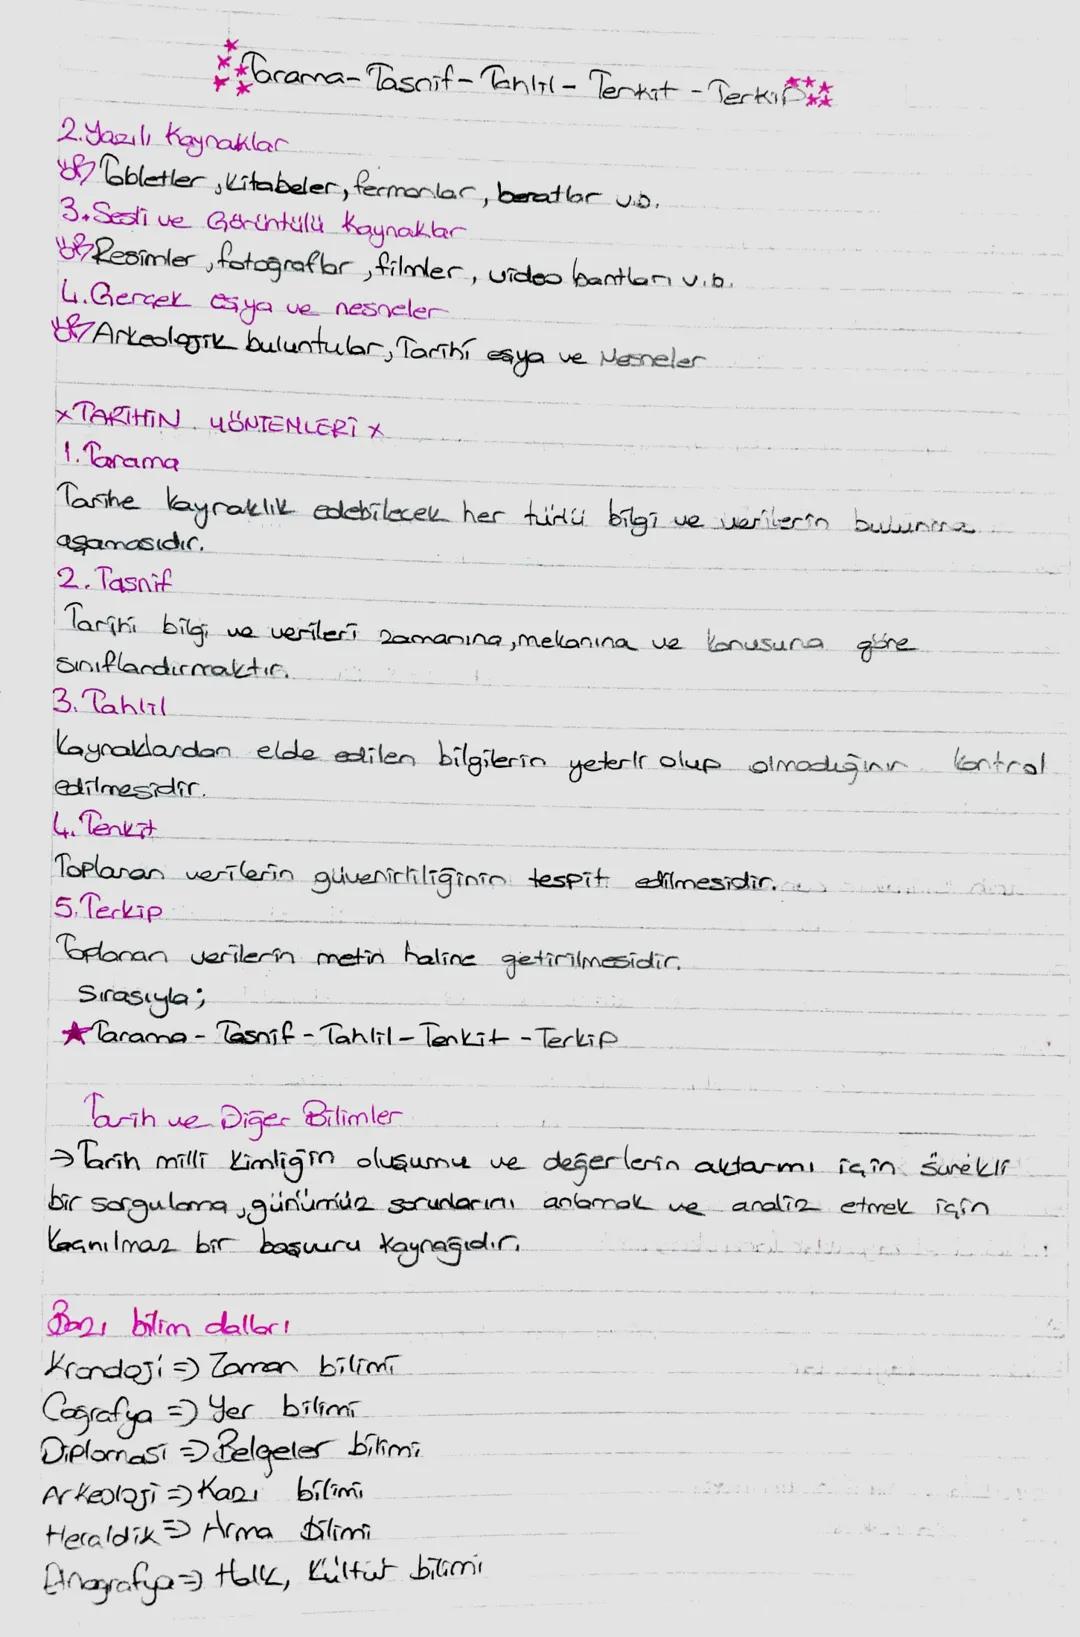 Tarama - Tasnif - Tahlil - Tenkit - Terkip
2. Yazılı Kaynaklar
Tabletler, kitabeler, fermanlar, beratlar v.b.
3. Sesli ve Görüntülü Kaynaklar
Resimler, fotoğraflar, filmler, video bantları v.b.
4. Gerçek eşya ve nesneler
Arkeolojik buluntular, Tarihî eşya ve Nesneler
x TARİHİN YÖNTEMLERİ x
1. Tarama
Tarihe kaynaklık edebilecek her türlü bilgi ve verilerin bulunma
aşamasıdır.
2. Tasnif
Tarihi bilgi ve verileri zamanına, mekanına ve konusuna göre
sınıflandırmaktır.
3. Tahlil
Kaynaklardan elde edilen bilgilerin yeterli olup olmadığının kontrol
edilmesidir.
4. Tenkit
Toplanan verilerin güvenirliliğinin tespit edilmesidir.
5. Terkip
Toplanan verilerin metin haline getirilmesidir.
Sırasıyla;
★ Tarama - Tasnif - Tahlil - Tenkit - Terkip
Tarih ve Diğer Bilimler
→ Tarih milli kimliğin oluşumu ve değerlerin aktarmı için sürekli
bir sorgulama, günümüz sorunlarını anlamak ve analiz etmek için
kaçınılmaz bir başvuru kaynağıdır.
Bazı bilim dalları
Kronoloji => Zaman bilimi
Coğrafya => Yer bilimi
Diplomasi => Belgeler bilimi
Arkeoloji => Kazı bilimi
Heraldik => Arma bilimi
Etnografya => Halk, Kültür bilimi